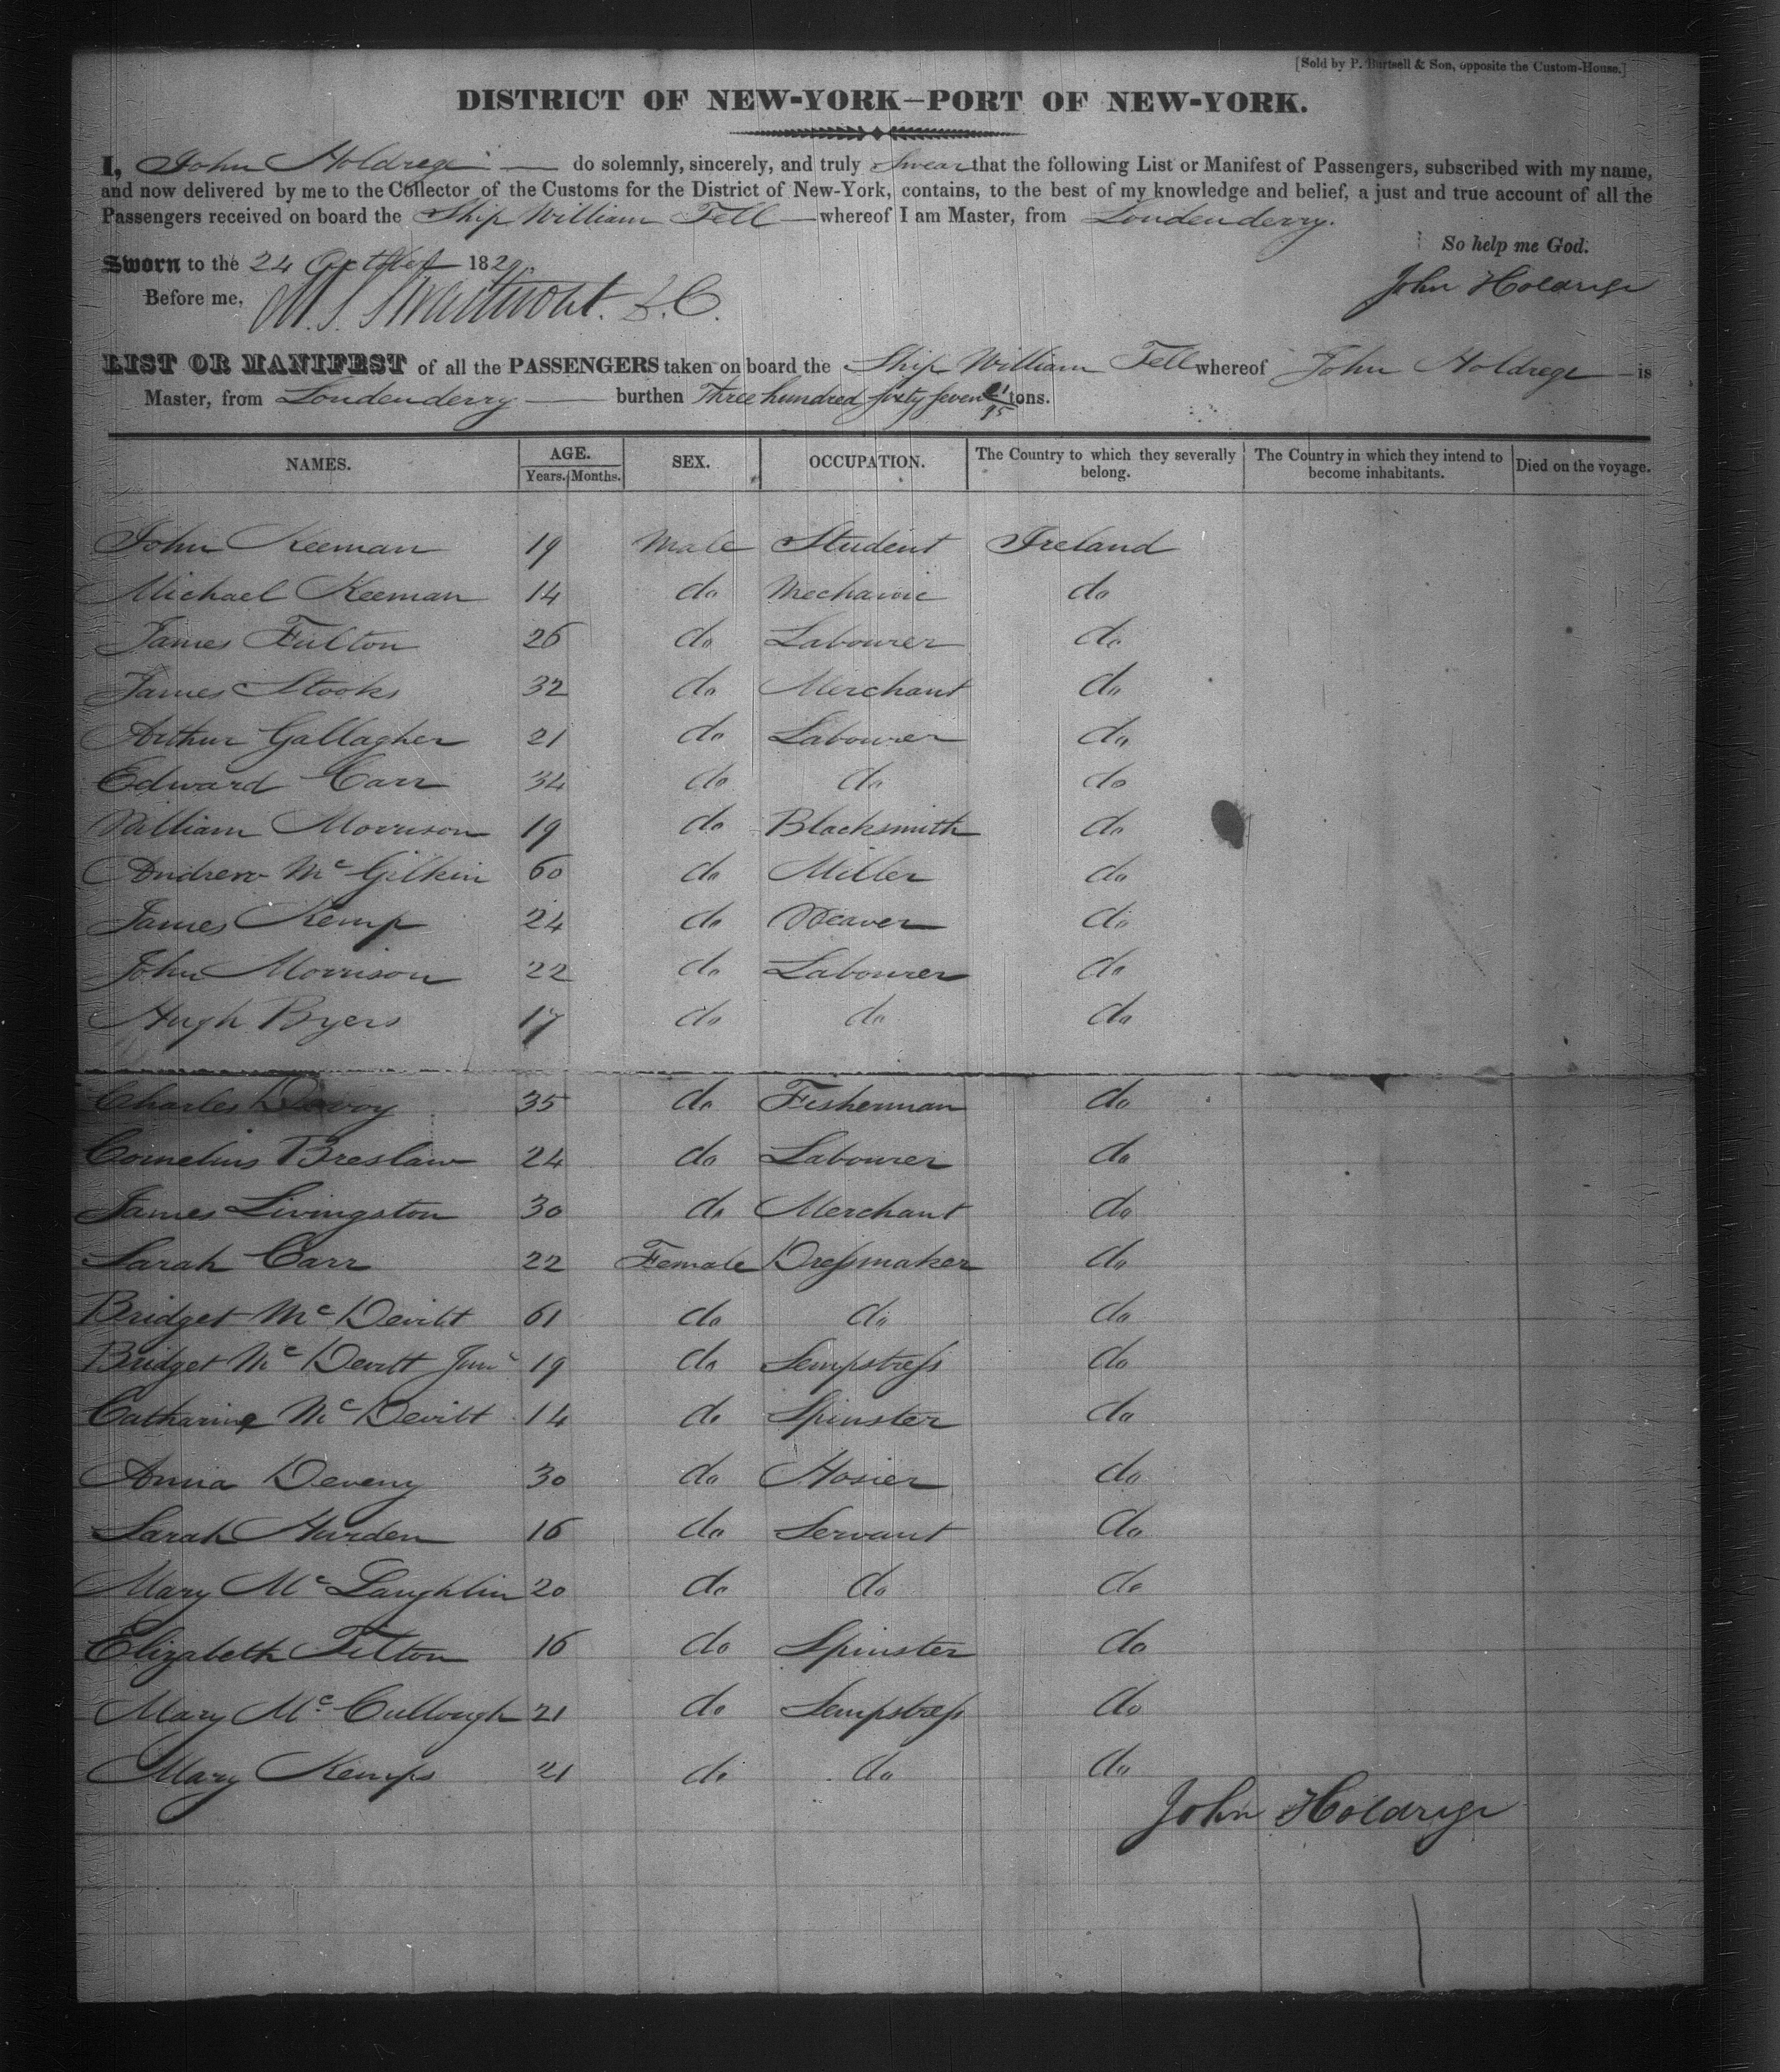 [Sold by P. Burtsell & Son, opposite the Custom-House.]
DISTRICT OF NEW-YORK—PORT OF NEW-YORK.
I, John Holdrege — do solemnly, sincerely, and truly Swear that the following List or Manifest of Passengers, subscribed with my name,
and now delivered by me to the Collector of the Customs for the District of New-York, contains, to the best of my knowledge and belief, a just and true account of all the
Passengers received on board the Ship William Tell — whereof I am Master, from Londenderry.
So help me God.
Sworn to the 24 October 182
Before me, M. S. Swartwout. D. C.
John Holdrege
LIST OR MANIFEST of all the PASSENGERS taken on board the Ship William Tell whereof John Holdrege — is
Master, from Londenderry — burthen Three hundred sixty seven /95 tons.
NAMES. AGE. Years. Months. SEX. OCCUPATION. The Country to which they severally belong. The Country in which they intend to become inhabitants. Died on the voyage.
John Keeman 19 Male Student Ireland
Michael Keeman 14 do Mechanic do
James Fulton 26 do Labourer do
James Stooks 32 do Merchant do
Arthur Gallagher 21 do Labourer do
Edward Carr 34 do do do
William Morrison 19 do Blacksmith do
Andrew Mc Gilkin 60 do Miller do
James Kemp 24 do Weaver do
John Morrison 22 do Labourer do
Hugh Byers 17 do do do
Charles Devoy 35 do Fisherman do
Cornelius Breslaw 24 do Labourer do
James Livingston 30 do Merchant do
Sarah Carr 22 Female Dressmaker do
Bridget Mc Devitt 61 do do do
Bridget Mc Devitt Junr 19 do Sempstress do
Catharine Mc Devitt 14 do Spinster do
Anna Deveny 30 do Hosier do
Sarah Hurden 16 do Servant do
Mary Mc Laughlin 20 do do do
Elizabeth Tilton 16 do Spinster do
Mary Mc Cullough 21 do Sempstress do
Mary Kemps 21 do do do
John Holdrege